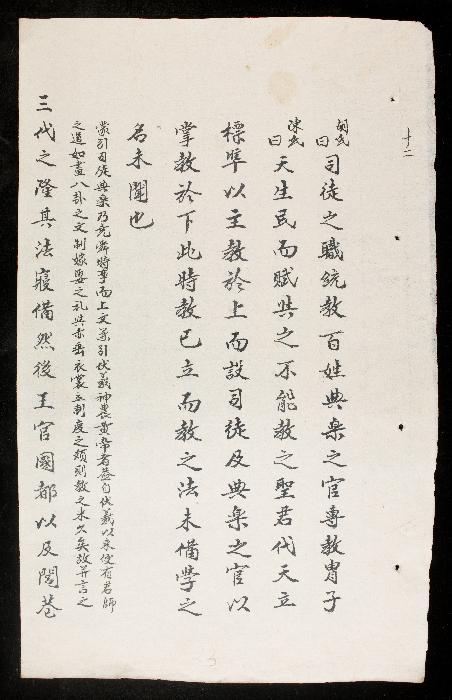 十二
胡氏曰司徒之職統教百姓典楽之官專教胄子
陳氏曰天生民而賦與之不能教之聖君代天立
標準以主教於上而設司徒及典楽之官以
掌教於下此時教已立而教之法未備學之
名未聞也
蒙引司徒典楽乃堯舜時事而上文兼引伏羲神農黄帝者蓋自伏羲以来便有君師
之道如畫八卦之文制嫁娶之礼與赤垂衣裳五制度之類則教之来久矣故并言之
三代之隆其法寖備然後王宮國都以及閭巷